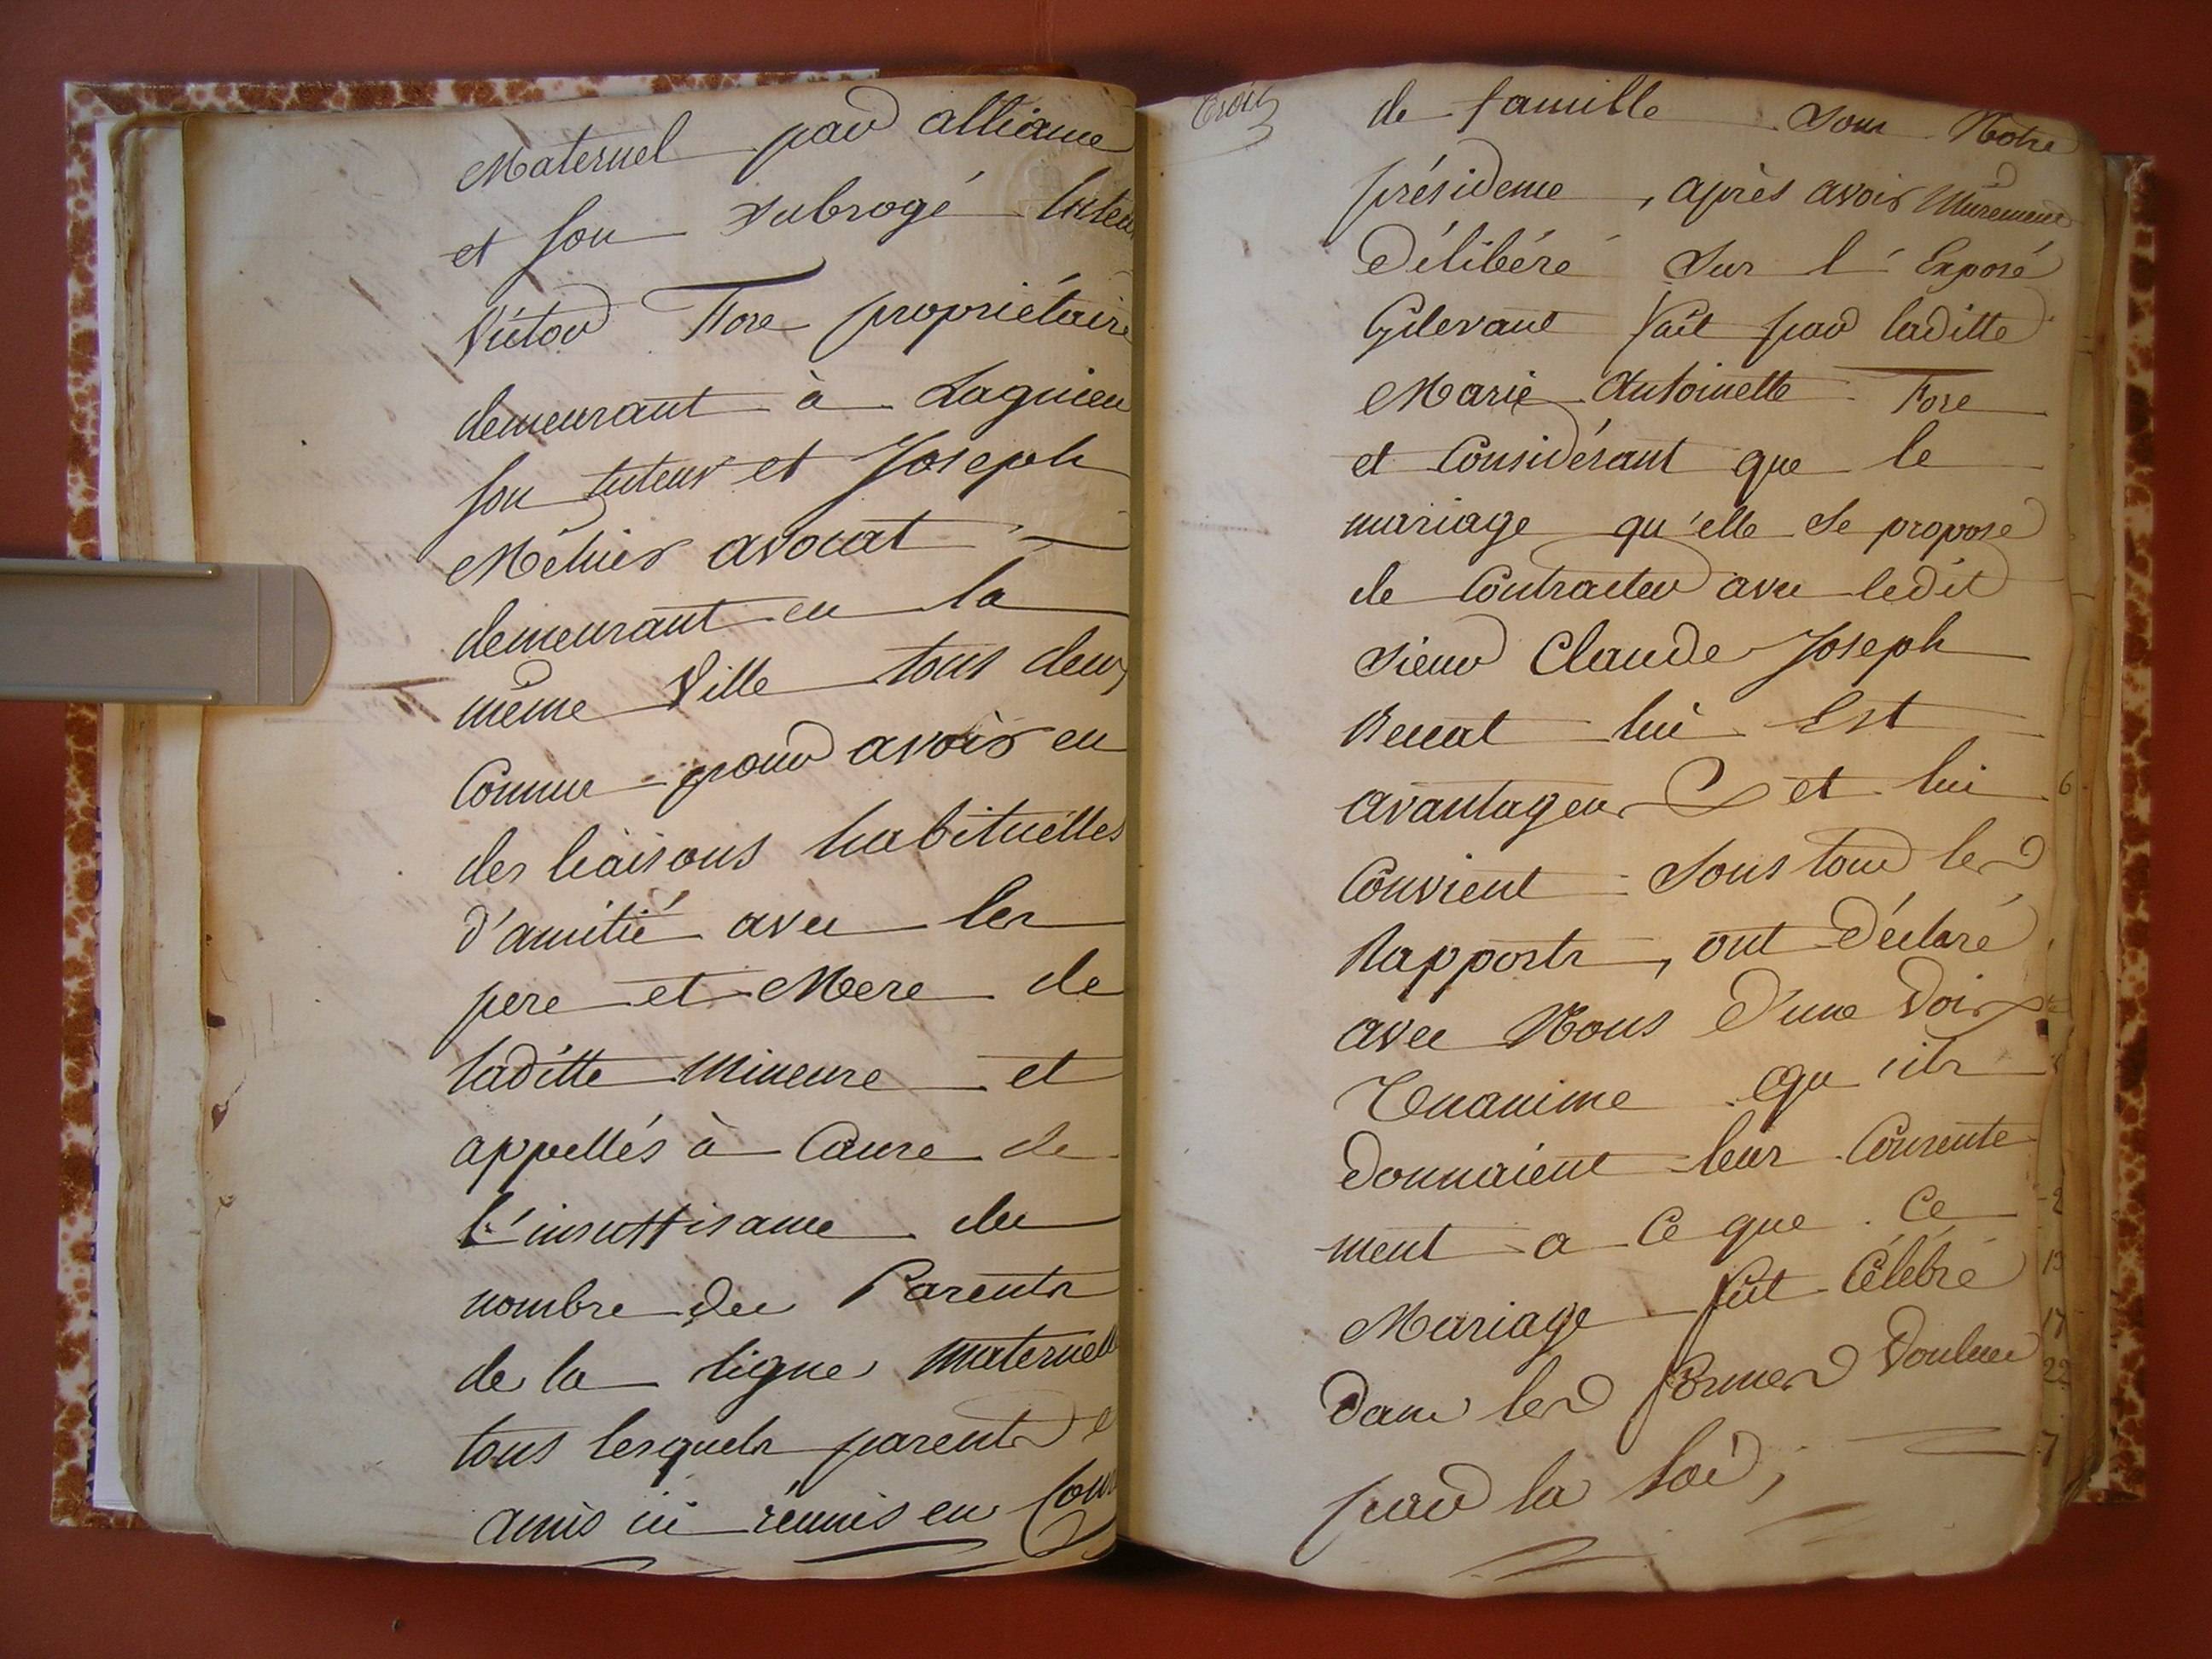 Maternel par alliance
et son subrogé tuteur
Victor Fore propriétaire
demeurant à Lagnieu
son tuteur et Joseph
Méhier avocat
demeurant en la
même Ville tous deux
connus pour avoir eu
des liaisons habituelles
d'amitié avec les
pere et Mere de
laditte Mineure et
appellés à Cause de
L'insuffisance du
nombre des Parents
de la ligne maternelle
tous lesquels parents et
amis ici réunis en Conseil
Trois
de famille sous Notre
présidence, après avoir Murement
Délibéré Sur l'Exposé
Cydevant fait par laditte
Marie Antoinette Fore
et Considérant que le
mariage qu'elle se propose
de Contracter avec ledit
sieur Claude Joseph
Benat lui Est
avantageux et lui
Convient Sous tous les
Rapports, ont Déclaré
avec Nous D'une Voix
Unanime Qu'ils
Donnaient leur Consente
ment a ce que Ce
Mariage fut Célébré
Dans les formes Voulues
par la Loi;
6
2
13
17
22
7